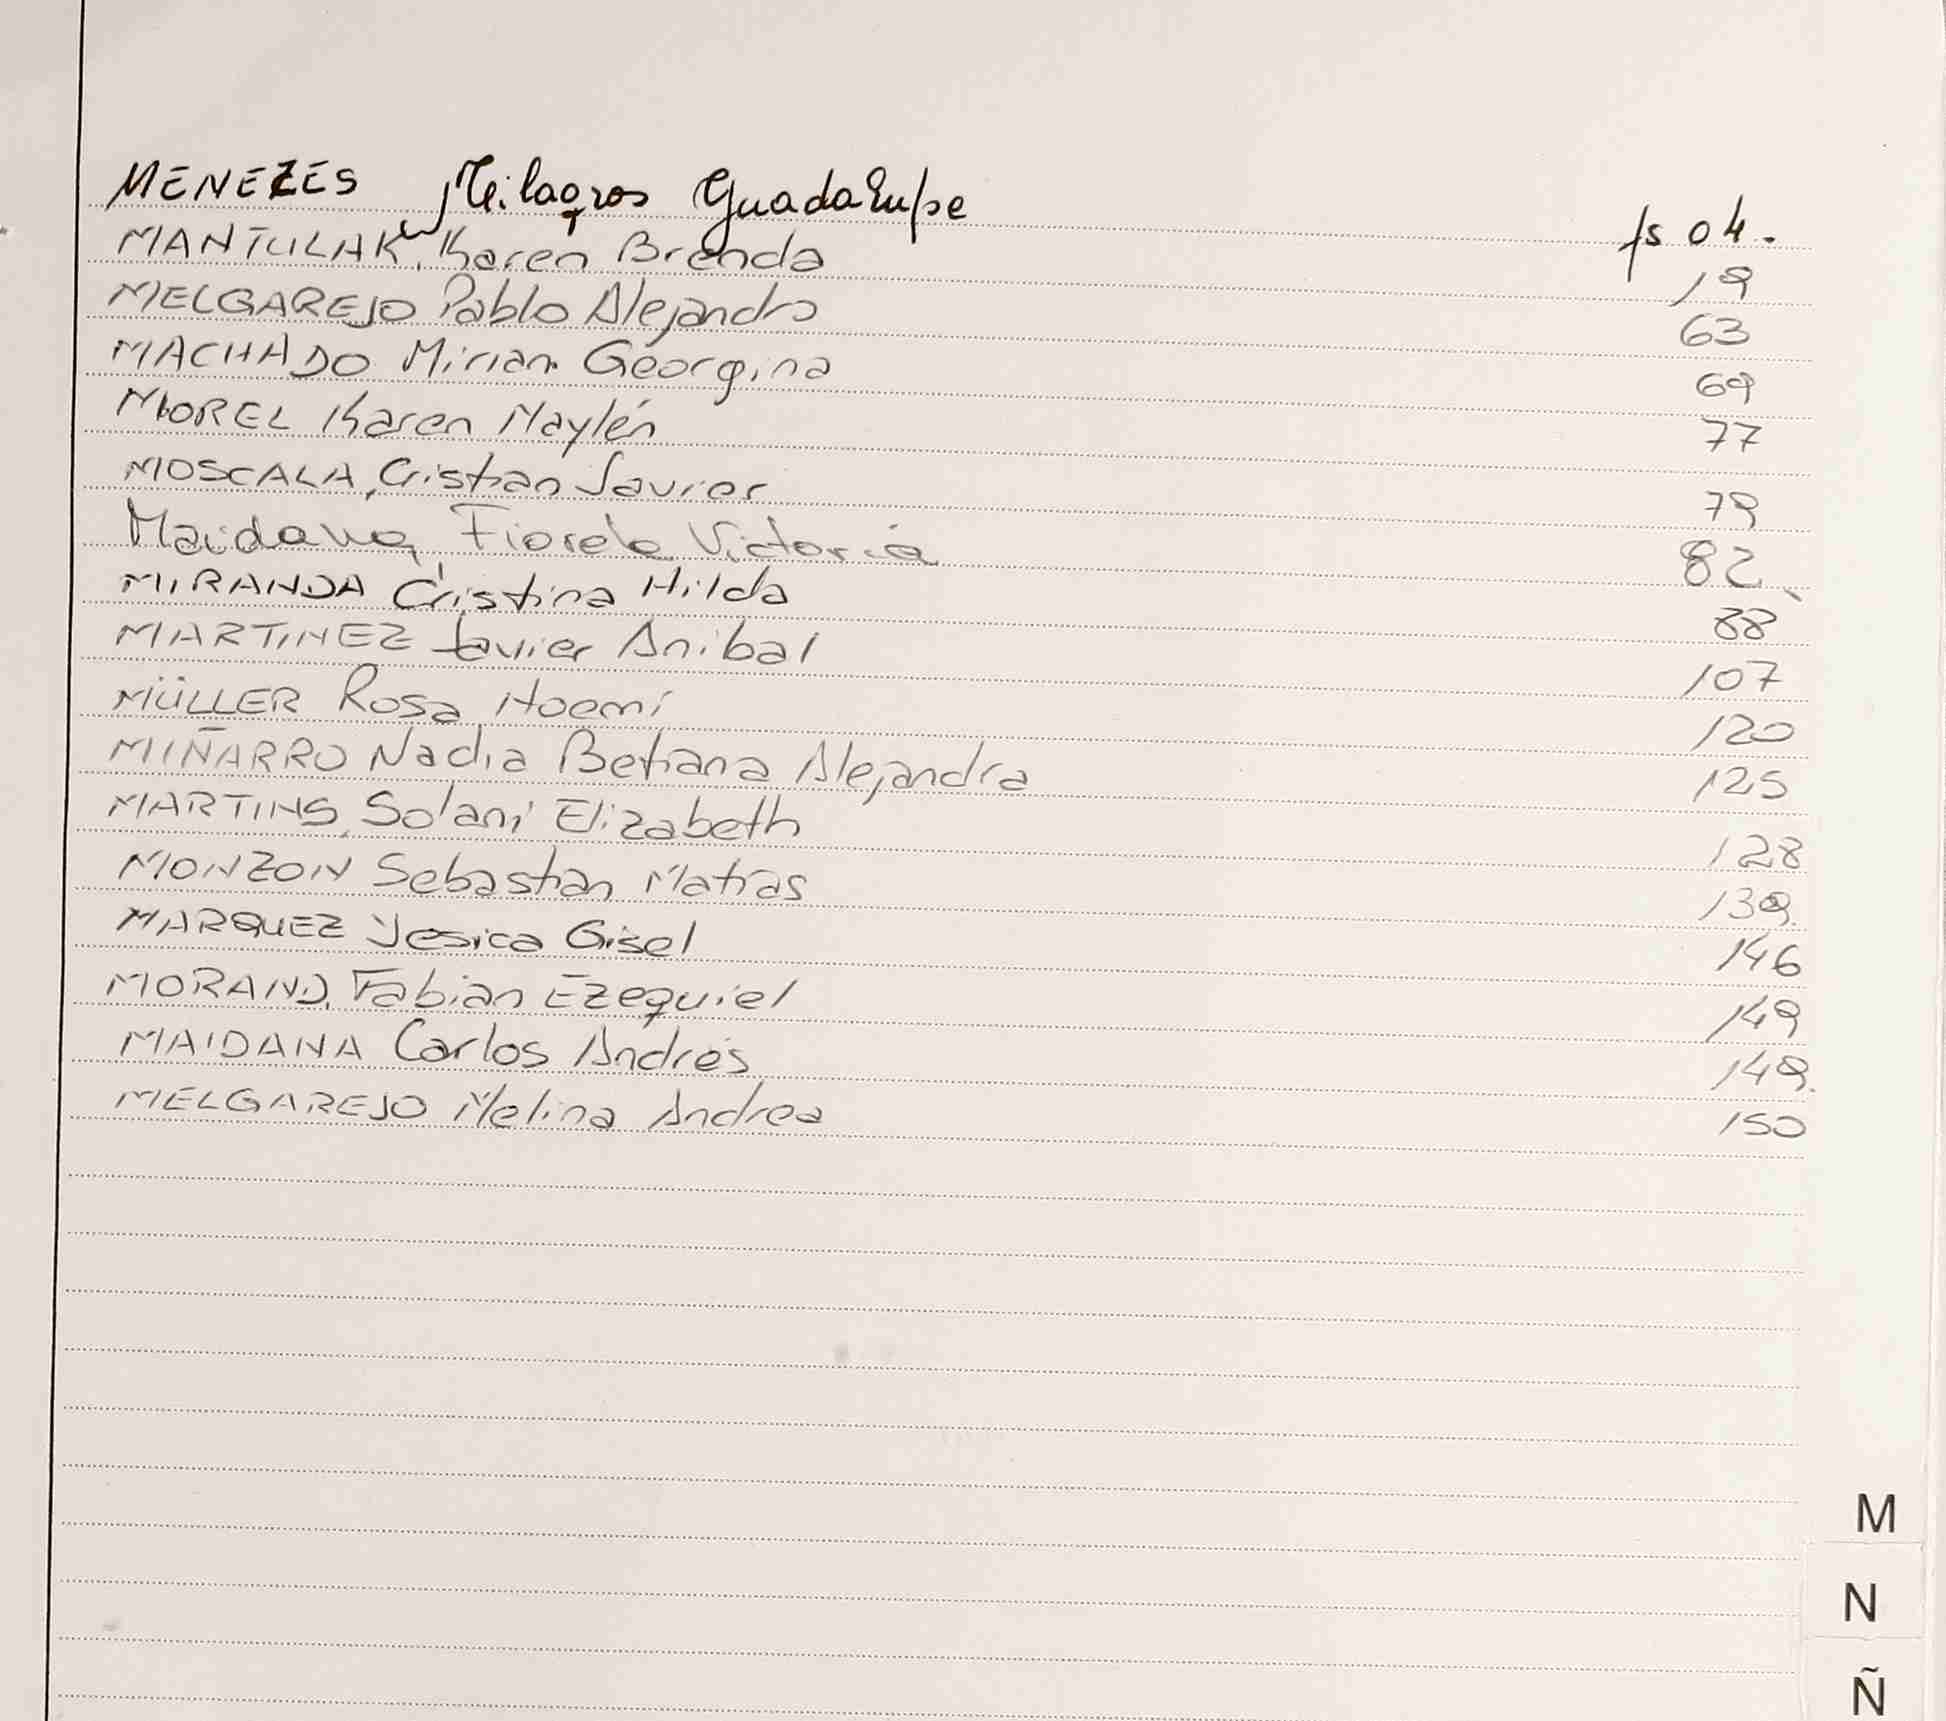 MENEZES Milagros Guadalupe fs 04.
MANTULAK, Karen Brenda 19
MELGAREJO Pablo Alejandro 63
MACHADO Mirian Georgina 69
MOREL Karen Maylén 77
MOSCALA, Cristian Javier 79
Maidana, Fiorela Victoria 82
MIRANDA Cristina Hilda 88
MARTINEZ Javier Anibal 107
MÜLLER Rosa Noemí 120
MIÑARRO Nadia Betiana Alejandra 125
MARTINS, Solani Elizabeth 128
MONZON Sebastian Matías 139.
MARQUEZ Yesica Gisel 146
MORAND, Fabian Ezequiel 149
MAIDANA Carlos Andrés 149.
MELGAREJO Melina Andrea 150
M
N
Ñ